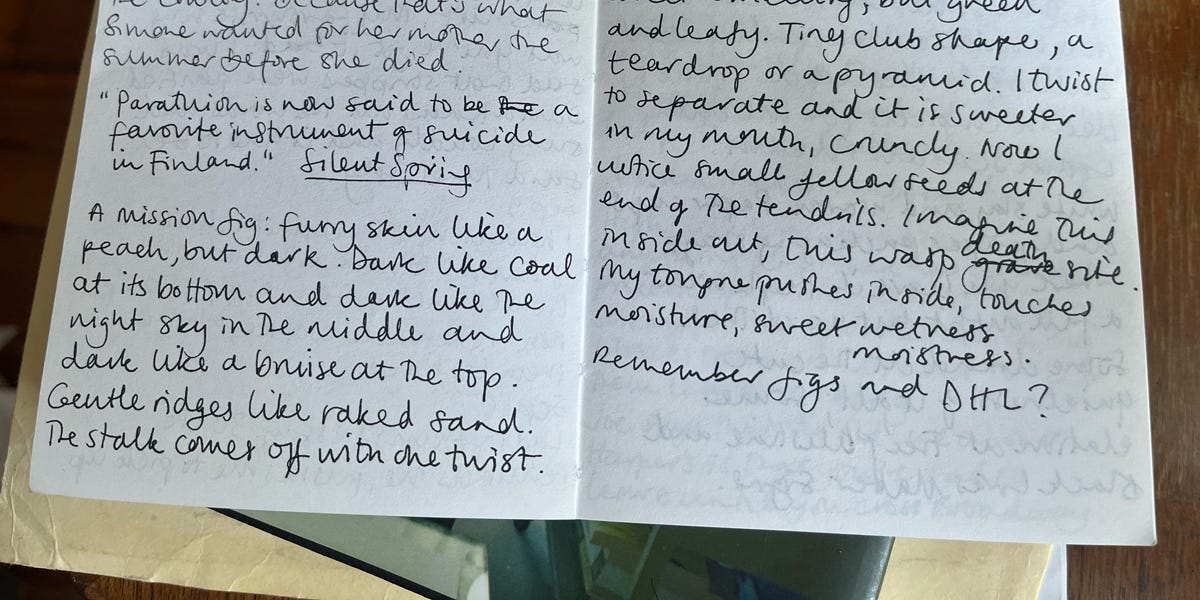 the enemy. Because that's what
Simone wanted for her mother the
summer before she died.
"Parathion is now said to be the a
favorite instrument of suicide
in Finland." Silent Spring
A mission fig: furry skin like a
peach, but dark. Dark like coal
at its bottom and dark like the
night sky in the middle and
dark like a bruise at the top.
Gentle ridges like raked sand.
The stalk comes off with one twist.
but green
and leafy. Tiny club shape, a
teardrop or a pyramid. I twist
to separate and it is sweeter
in my mouth, crunchy. Now I
notice small yellow seeds at the
end of the tendrils. Imagine this
inside out, this wasp grave death site.
My tongue pushes inside, touches
moisture, sweet wetness
moistness.
Remember figs and DHL?